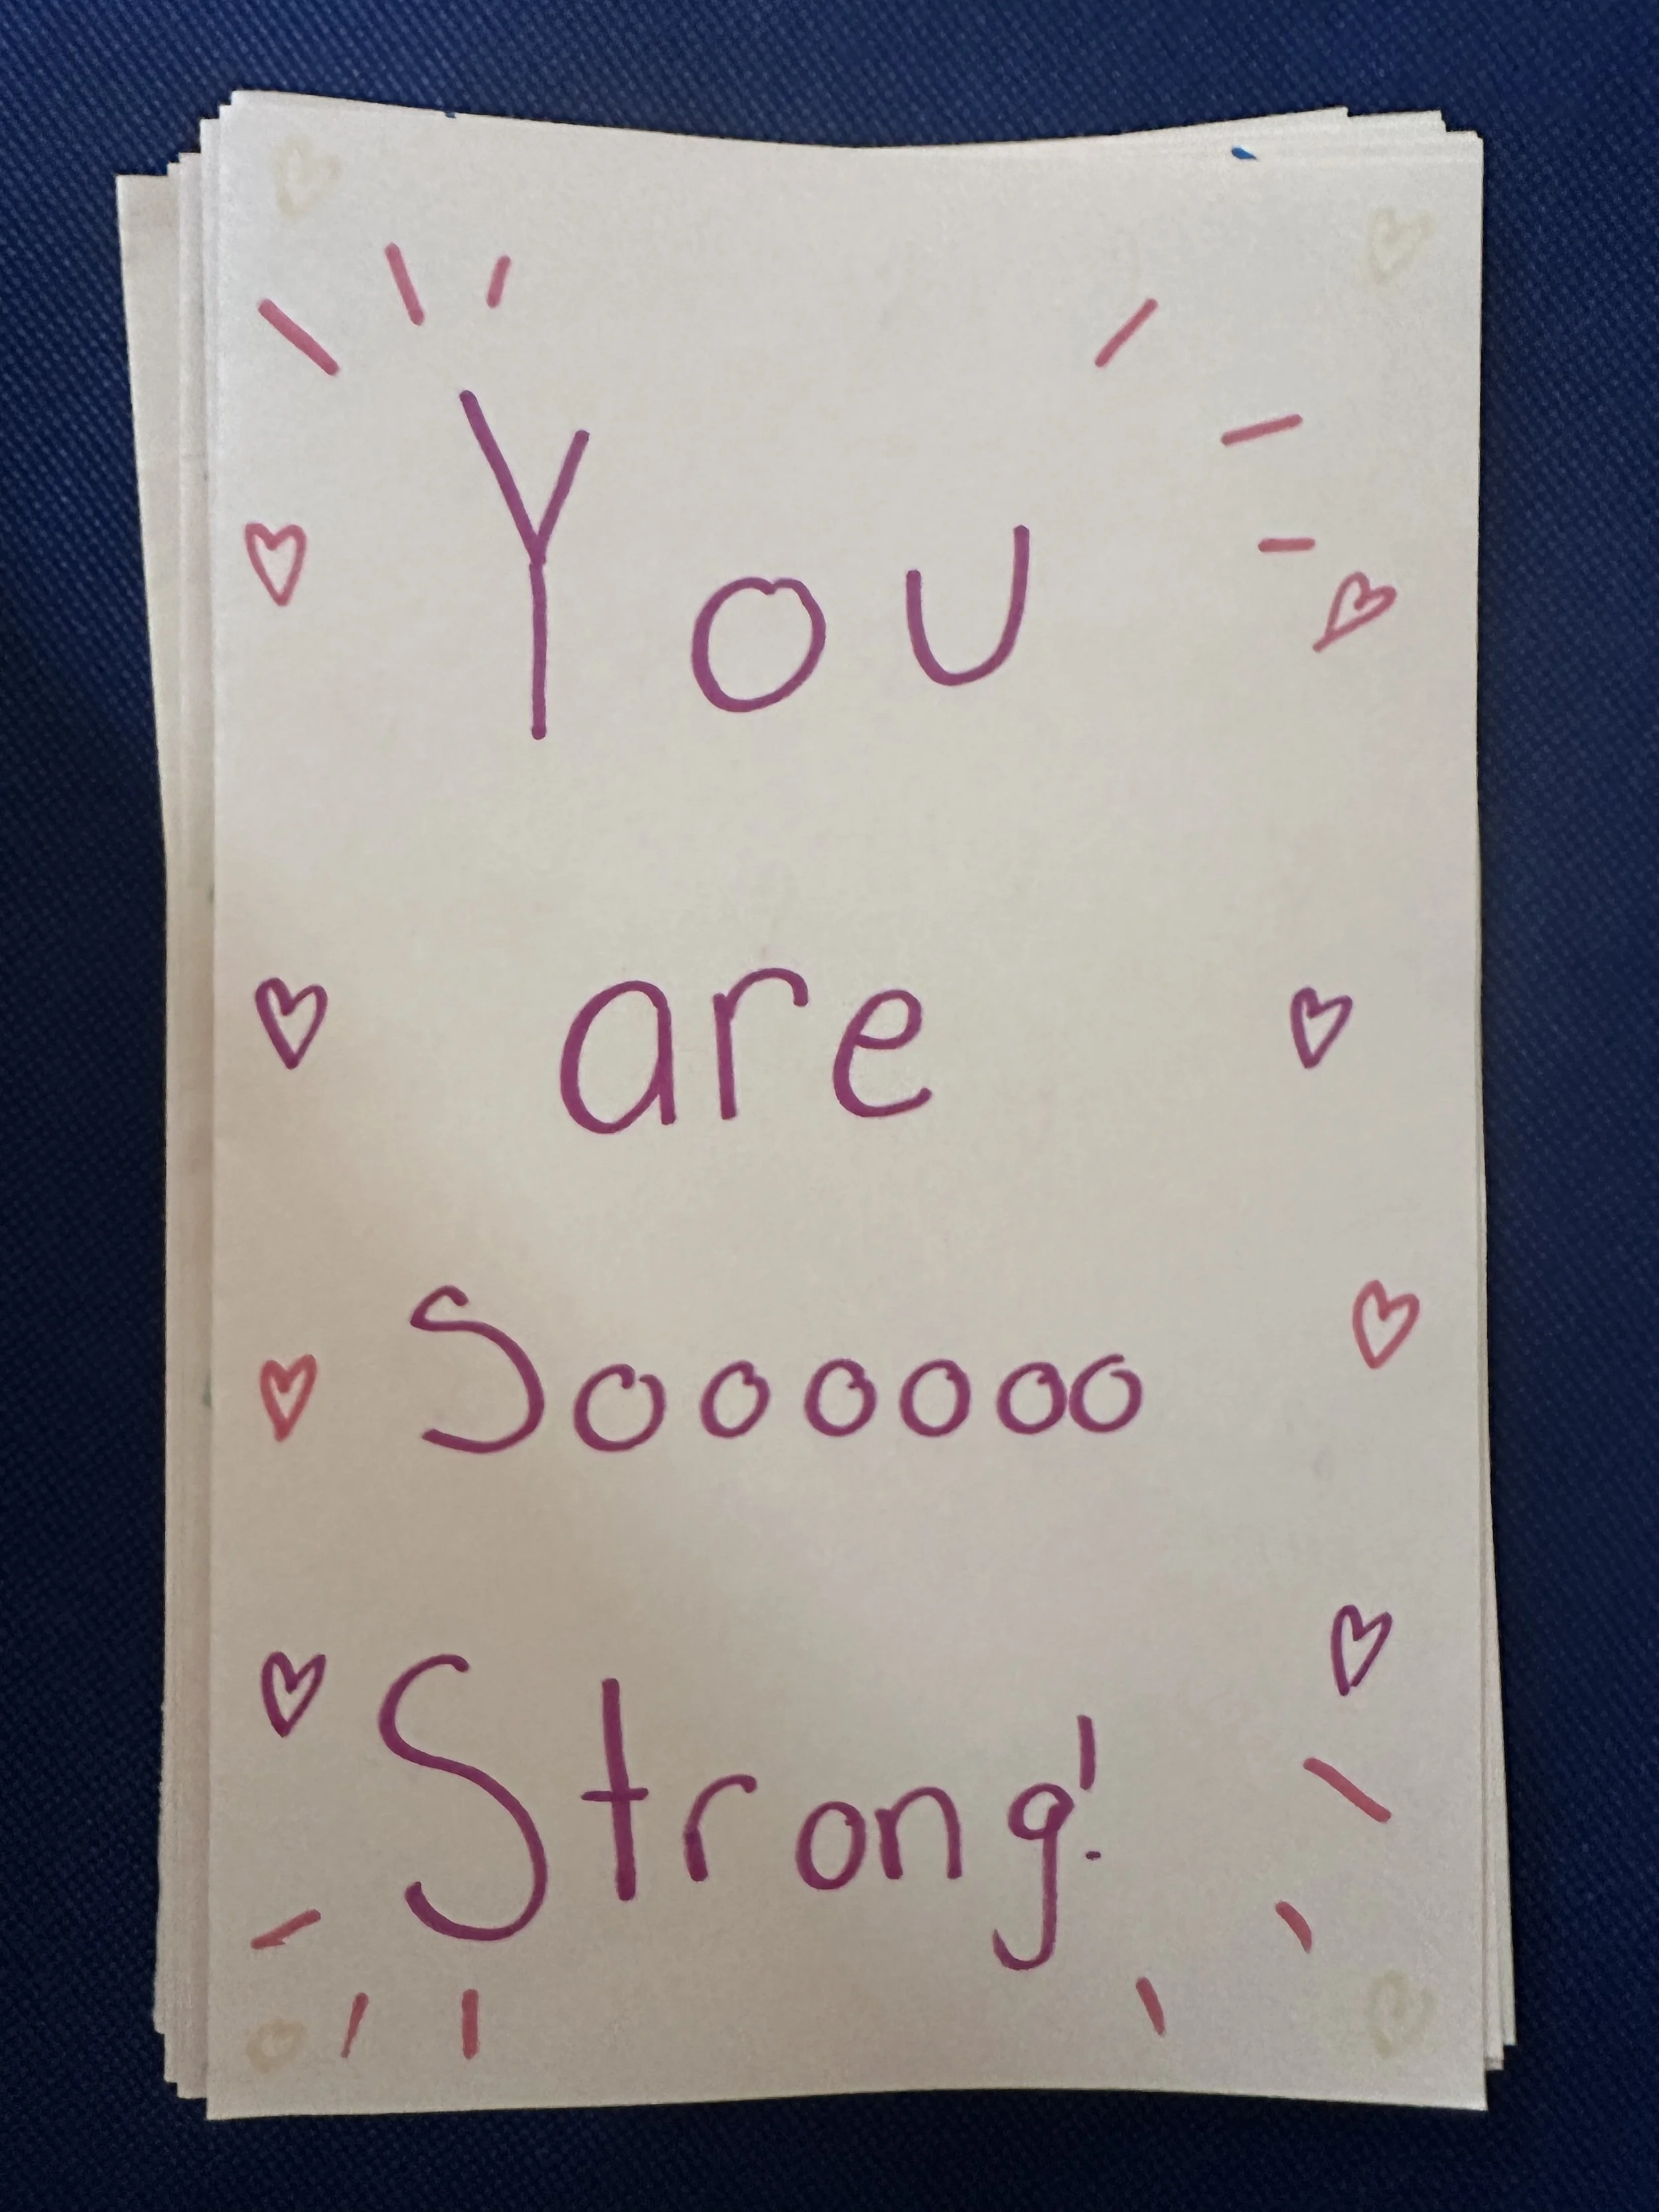 You
are
Soooooo
Strong!